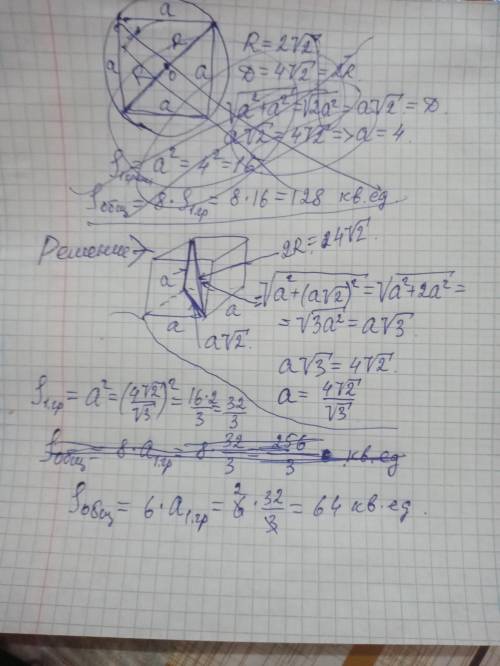 a
R = 2√2
R
a
R
O
a
D = 4√2 = 2R
√a²+a² = √2a² = a√2 = D
a
a√2 = 4√2 => a = 4.
= a² = 4² = 16
Sобщ = 8 · S1гр = 8 · 16 = 128 кв.ед
Решение
a
a
a
a√2
√a²+(a√2)² = √a²+2a² =
= √3a² = a√3
a√3 = 4√2
a = 4√2/√3
S1.гр = a² = (4√2/√3)² = 16·2/3 = 32/3
Sобщ = 8 · a1.гр = 8 32/3 = 256/3 кв.ед
Sобщ = 6 · a1.гр = 6 2 · 32/3 = 64 кв.ед.